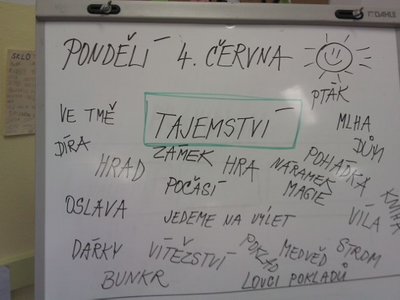 PONDĚLÍ 4. ČERVNA
PTÁK
VE TMĚ
TAJEMSTVÍ
MLHA
DÍRA
ZÁMEK
DŮM
HRAD
HRA
NÁRAMEK
POHÁDKA
POČASÍ
MAGIE
KNIHA
OSLAVA
JEDEME NA VÝLET
VÍLA
DÁRKY
VÍTĚZSTVÍ
POKLAD
MEDVĚD
STROM
BUNKR
LOVCI POKLADŮ
SKLO